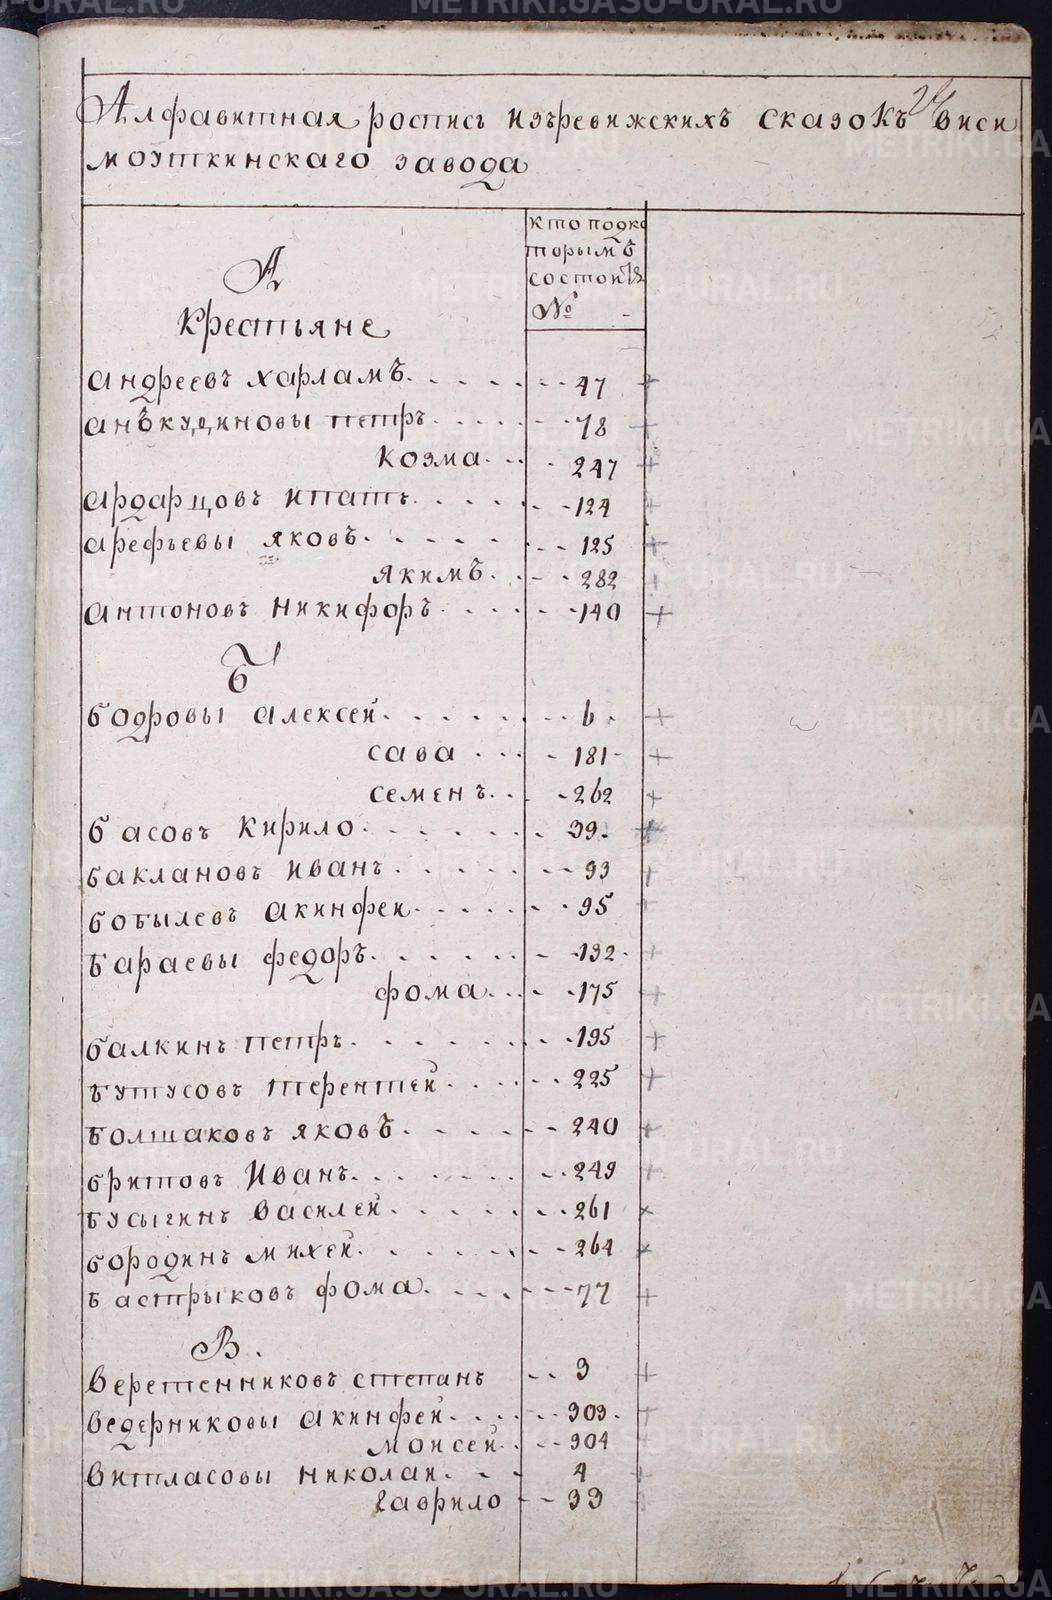 METRIKI.GASU-URAL.RU
Алфавитная роспись изъревижскихъ сказокъ виси
моуткинскаго завода
кто подко
торымъ
состоитъ
№
А
Крестьяне
андреевъ харламъ 47 +
анъкудиновы петръ 78 +
козма 247 +
ардарцовъ ипатъ 124 +
арефьевы яковъ 125 +
якимъ 282 +
антоновъ никифоръ 140 +
Б
бодровы алексей 6 +
сава 181 +
семенъ 262 +
басовъ кирило 39 +
баклановъ иванъ 93 +
бобылевъ акинфеи 95 +
бараевы федоръ 132 +
фома 175 +
балкинъ петръ 195 +
бутусовъ терентей 225 +
болшаковъ яковъ 240 +
бритовъ иванъ 249 +
бусыгинъ василей 261 +
бородинъ михей 264 +
бастрыковъ фома 77 +
В.
веретенниковъ степанъ 3 +
ведерниковы акинфей 303 +
моисей 304 +
витласовы николаи 4 +
гаврило 33